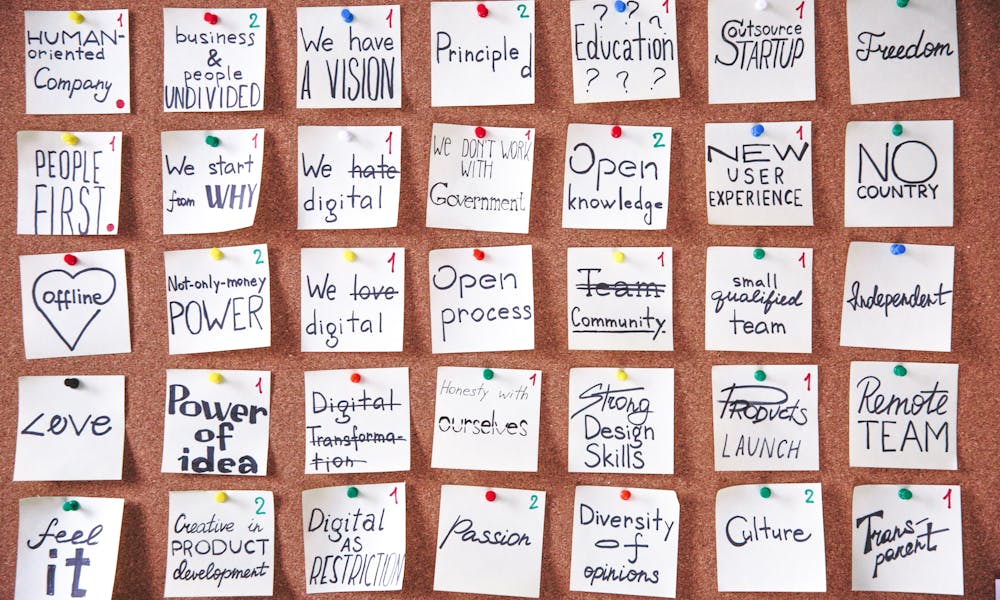 HUMAN-
oriented
Company
1
business
&
people
UNDIVIDED
2
We have
A VISION
1
Principled
2
? ?
Education
? ? ?
1
Outsource
STARTUP
1
Freedom
PEOPLE
FIRST.
1
We start
from WHY
1
We hate
digital
1
We DON'T WORK
WITH
Government
1
Open
knowledge
2
NEW
USER
EXPERIENCE
1
NO
COUNTRY
offline
Not-only-money
POWER
2
We love
digital
1
Open
process
Team
Community
1
small
qualified
team
1
Independent
Love
Power
of
idea
1
Digital
Transforma-
tion
Honesty with
ourselves
1
Strong
Design
Skills
PRODUCTS
LAUNCH
1
Remote
TEAM
feel
it
Creative in
PRODUCT
development
2
Digital
AS
RESTRICTION
1
Passion
2
Diversity
of
opinions
Culture
2
Trans-
parent
1